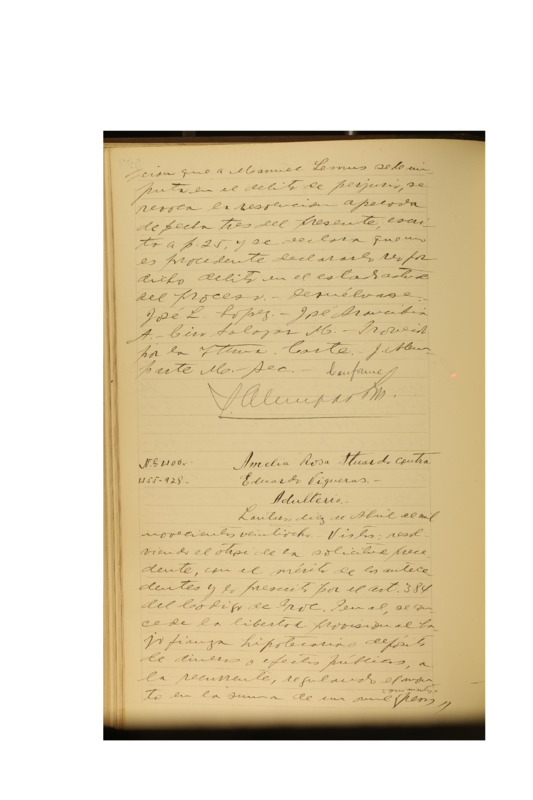 cion que a Manuel Lemus se le im
puta en el delito de perjurio, se
revoca la resolucion apelada
de fecha tres del presente, escri
ta a f. 25, y se declara que no
es procedente declararlo reo por
dicho delito en el estado actual
del proceso. - Devuélvase. -
José L. Lopez. - José Aravena
A. - Ciro Salazar M. - Proveido
por la Iltma. Corte. - J. Alem
parte M. - Sec. - Conforme
J. Alemparte M.
N.º 1100. - Amelia Rosa Stuardo contra
1155-928. Eduardo Figueras. -
Adulterio. -
diez de Abril de mil
novecientos veintiocho. - Vistos: resol
viendo el otrosi de la solicitud prece
dente, con el mérito de los antece
dentes y lo prescrito por el art. 384
del Código de Proc. Penal, se con
ce de la libertad provisional ba
jo fianza hipotecaria depósito
de dinero o efectos públicos, a
la recurrente, regulando el mon
to en la suma de un mil pesos